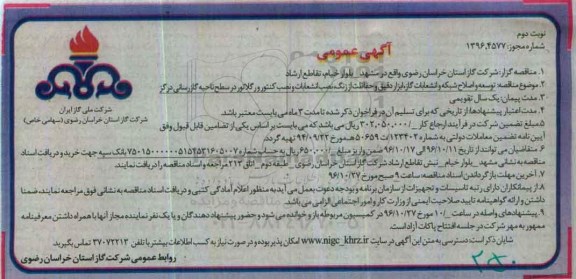 نوبت دوم
شماره مجوز: ۱۳۹۶,۴۵۷۷
آگهی عمومی
شرکت ملی گاز ایران
شرکت گاز استان خراسان رضوی (سهامی خاص)
۱. مناقصه گزار: شرکت گاز استان خراسان رضوی واقع در مشهد، بلوار خیام، تقاطع ارشاد
۲. موضوع مناقصه: توسعه و اصلاح شبکه و انشعابات گاز، ابزار دقیق و حفاظت از زنگ، نصب انشعابات و نصب کنتور و رگلاتور در سطح ناحیه گازرسانی درگز
۳. مدت پیمان: یک سال تقویمی
۴. مدت اعتبار پیشنهادها: از تاریخی که برای تسلیم آن در فراخوان ذکر شده تا مدت ۳ ماه می بایست معتبر باشد.
۵. مبلغ تضمین شرکت در فرآیند ارجاع کار: /۳۰۲,۰۵۰,۰۰۰ ریال می باشد که می بایست بر اساس یکی از تضامین قابل قبول وفق
آیین نامه تضمین معاملات دولتی به شماره ۱۲۳۴۰۲/ت۵۰۶۵۹ ه مورخ ۹۴/۰۹/۲۲ تهیه گردد.
۶. متقاضیان می توانند از تاریخ ۹۶/۱۰/۱۱ الی ۹۶/۱۰/۱۷ ضمن واریز مبلغ /۶۵۰,۰۰۰ ریال به حساب شماره بانک سپه جهت خرید و دریافت اسناد
مناقصه به نشانی مشهد _ بلوار خیام _ نبش تقاطع ارشاد شرکت گاز استان خراسان رضوی _ طبقه دوم _ اتاق ۲۱۳ مراجعه و اسناد مناقصه را دریافت نمایند.
۷. آخرین مهلت بازگرداندن اسناد مناقصه ساعت ۹ صبح مورخ ۹۶/۱۰/۲۷
۸. از پیمانکاران دارای رتبه تاسیسات و تجهیزات از سازمان برنامه و بودجه دعوت بعمل می آید به منظور اعلام آمادگی کتبی و دریافت اسناد مناقصه به نشانی فوق مراجعه نمایند، ضمنا
داشتن و ارائه گواهینامه تایید صلاحیت ایمنی از وزارت کار و امور اجتماعی الزامی می باشد.
۹. پیشنهادهای واصله در ساعت ۱۰ مورخ ۹۶/۱۰/۲۷ در کمیسیون مربوطه باز و خوانده می شود و حضور پیشنهاد دهندگان و یا یک نفر نماینده مجاز آنها با همراه داشتن معرفینامه
ممهور به مهر شرکت در جلسه افتتاح پاکات آزاد است.
شایان ذکر است دسترسی به متن این آگهی در سایت www.nigc_khrz.ir امکان پذیر بوده و در صورت نیاز به کسب اطلاعات بیشتر با تلفن ۳۷۰۷۲۲۱۳ تماس بگیرید.
روابط عمومی شرکت گاز استان خراسان رضوی